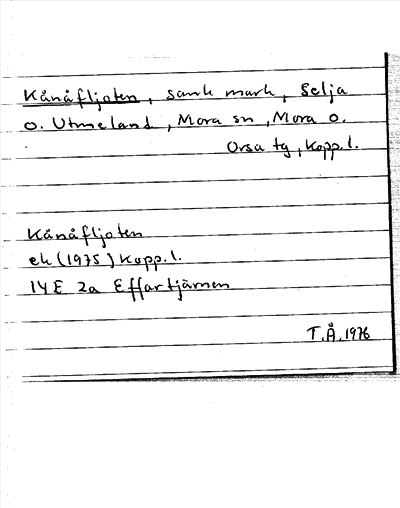 Kånåfljoten, sank mark, Selja
o. Utmeland, Mora sn, Mora o.
Orsa tg, Kopp. l.
Kånåfljoten
ek (1975) Kopp. l.
14E 2a Effartjärnen
T.Å. 1976